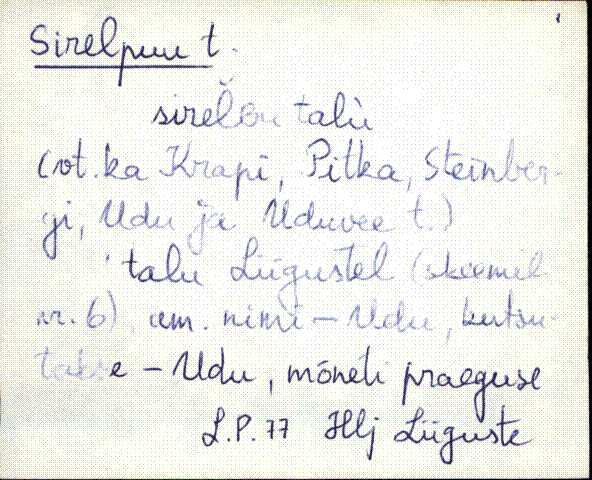 Sirelpuu t.
talù
(vt. ka Krapi, Pitka, Steinber-
gi, Udu ja Uduvee t.)
talu Liigustel (skeemil
nr. 6), am. nimi – Udu, kutsu-
takse – Udu, mõneti praeguse
L.P. 77 Hlj Liiguste